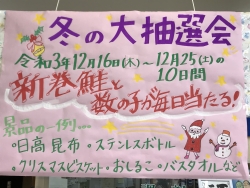 冬の大抽選会
令和3年12月16日(木)～12月25日(土)の
10日間
新巻鮭と数の子が毎日当たる!
景品の一例...
・日高昆布・ステンレスボトル
・クリスマスビスケット・おしるこ・バスタオルなど